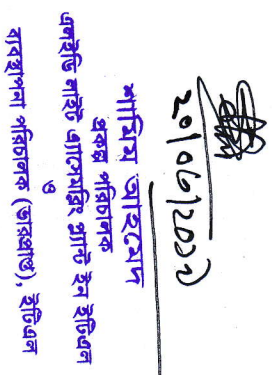 শামিম আহমেদ
প্রকল্প পরিচালক
এলইডি লাইট এ্যাসেমব্লিং প্লান্ট ইন ইটিএল
ও
ব্যবস্থাপনা পরিচালক (ভারপ্রাপ্ত), ইটিএল